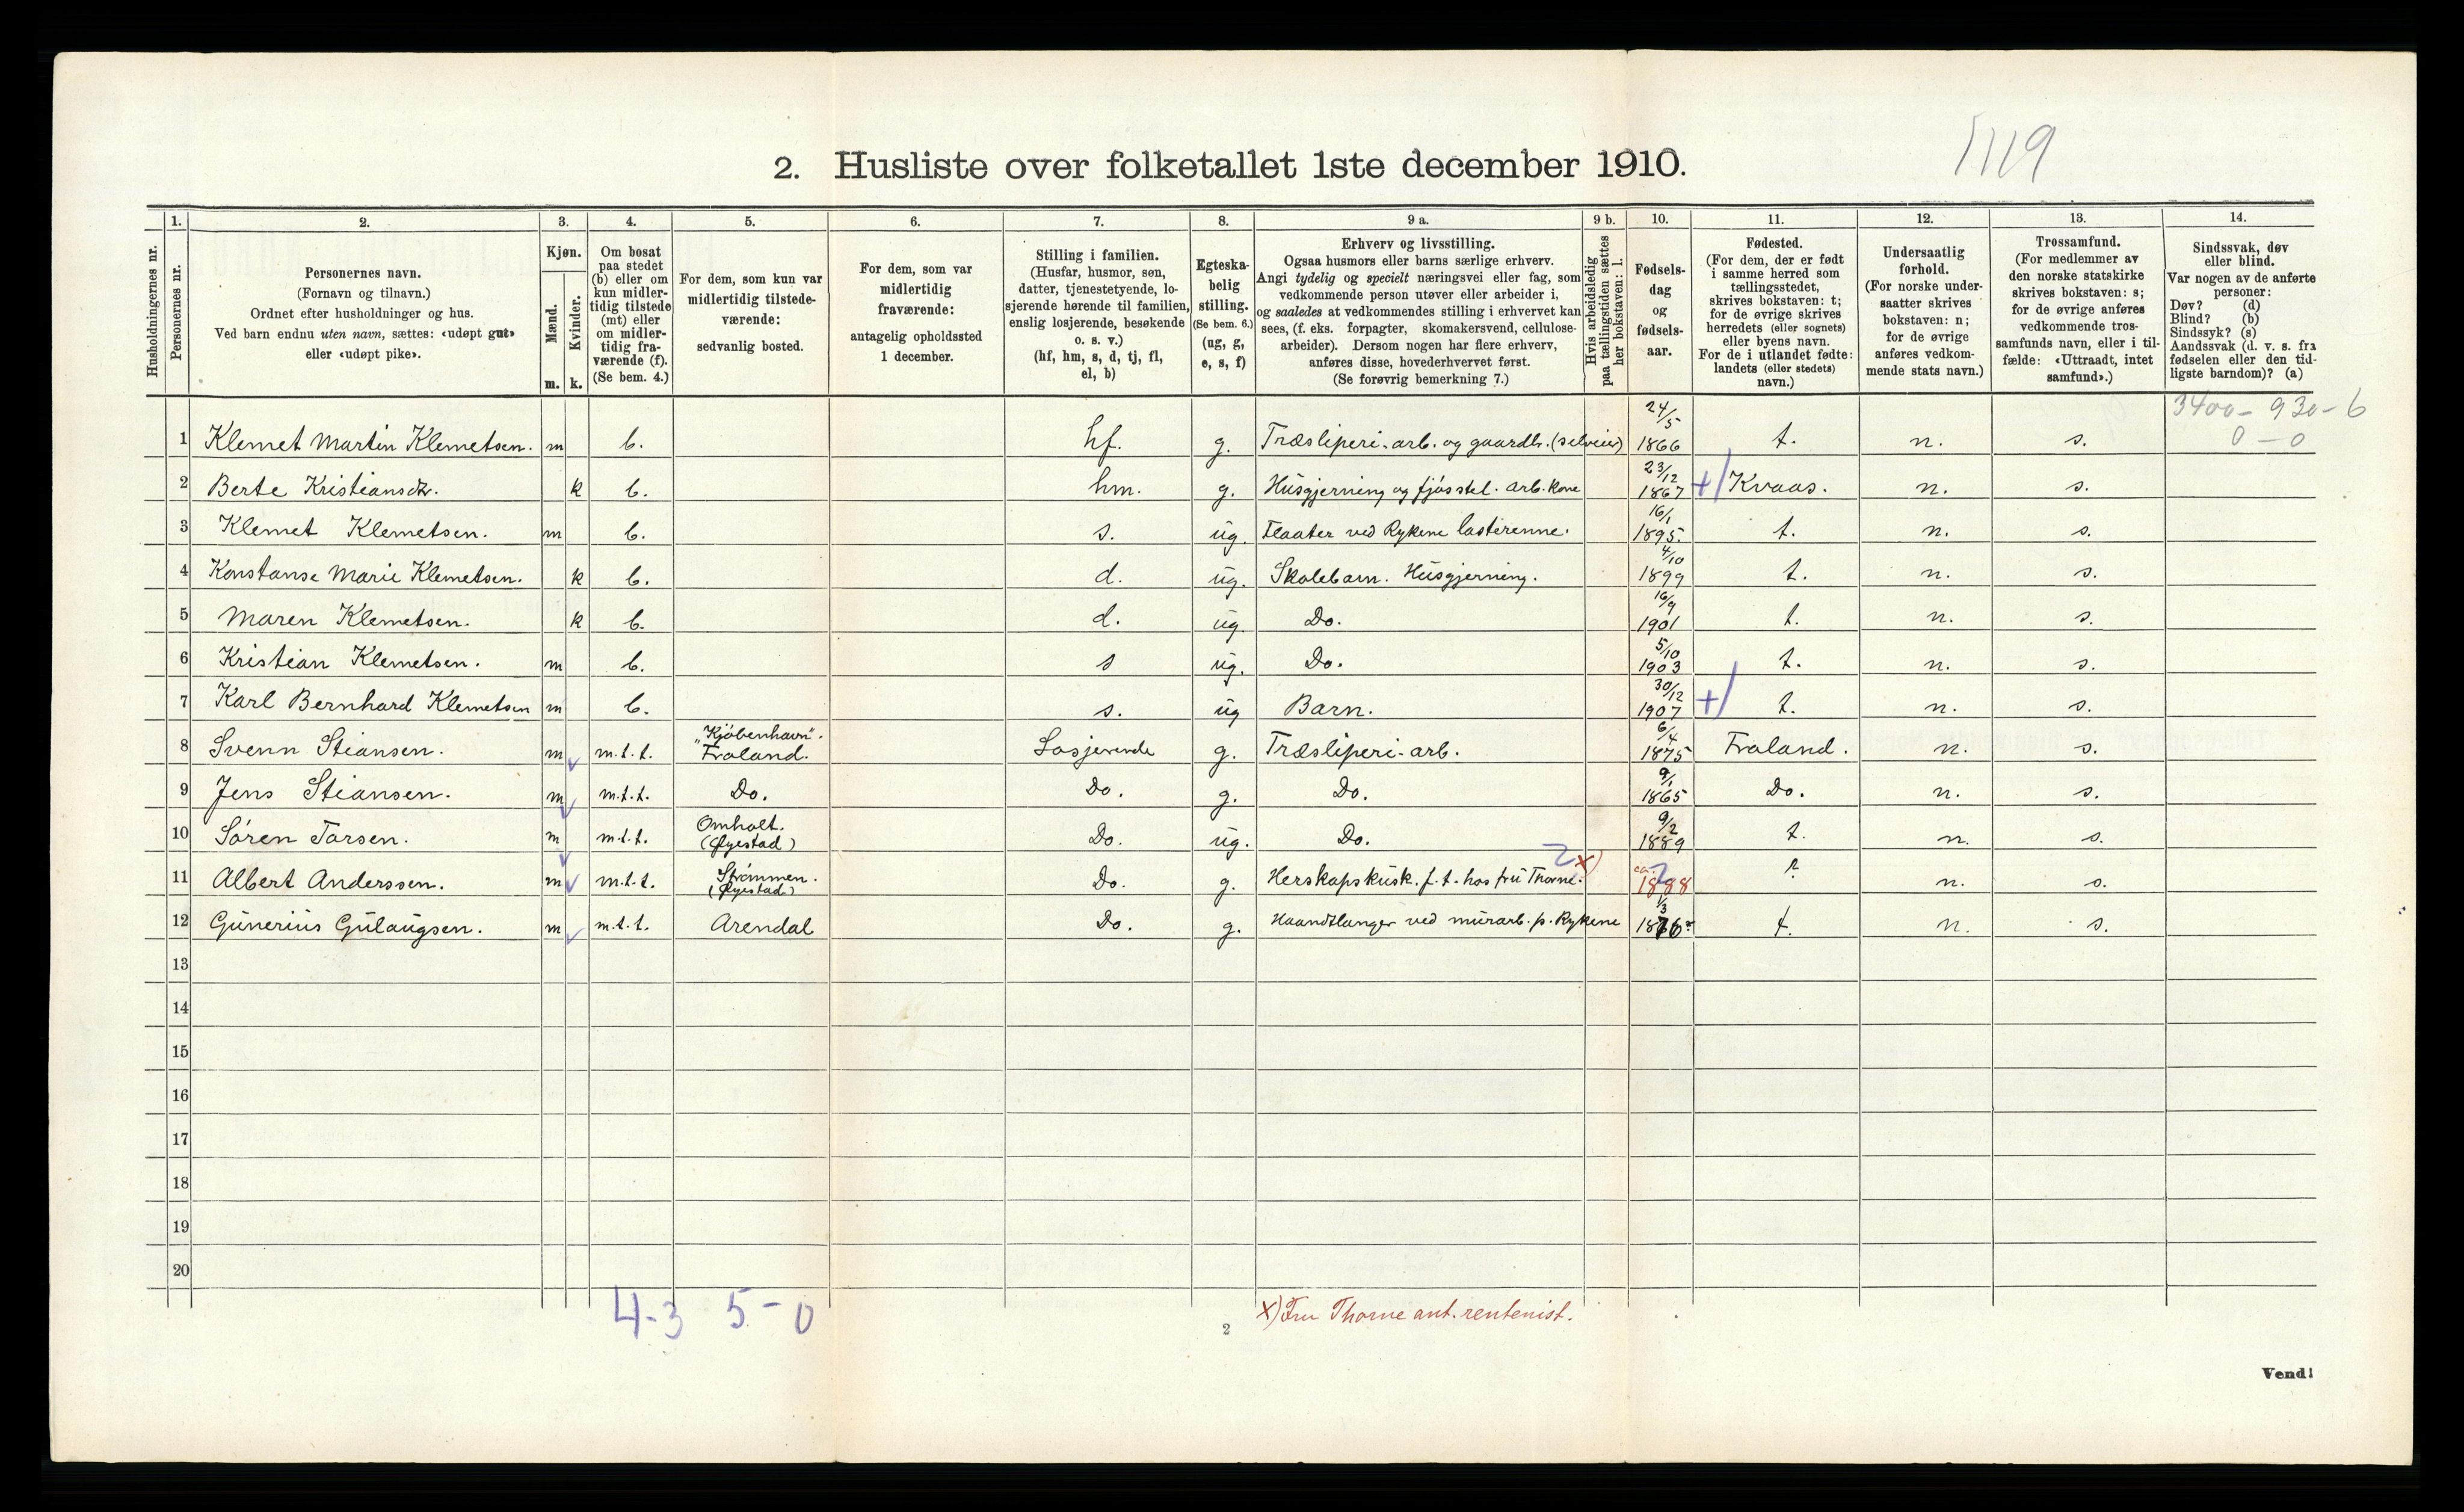 1119
2. Husliste over folketallet 1ste december 1910.
Husholdningernes nr.
1. Personernes nr.
2. Personernes navn.
(Fornavn og tilnavn.)
Ordnet efter husholdninger og hus.
Ved barn endnu uten navn, sættes: «udøpt gut»
eller «udøpt pike».
3. Kjøn.
Mænd. m.
Kvinder. k.
4. Om bosat
paa stedet
(b) eller om
kun midler-
tidig tilstede
(mt) eller
om midler-
tidig fra-
værende (f).
(Se bem. 4.)
5. For dem, som kun var
midlertidig tilstede-
værende:
sedvanlig bosted.
6. For dem, som var
midlertidig
fraværende:
antagelig opholdssted
1 december.
7. Stilling i familien.
(Husfar, husmor, søn,
datter, tjenestetyende, lo-
sjerende hørende til familien,
enslig losjerende, besøkende
o. s. v.)
(hf, hm, s, d, tj, fl,
el, b)
8. Egteska-
belig
stilling.
(Se bem. 6.)
(ug, g,
e, s, f)
9 a. Erhverv og livsstilling.
Ogsaa husmors eller barns særlige erhverv.
Angi tydelig og specielt næringsvei eller fag, som
vedkommende person utøver eller arbeider i,
og saaledes at vedkommendes stilling i erhvervet kan
sees, (f. eks. forpagter, skomakersvend, cellulose-
arbeider). Dersom nogen har flere erhverv,
anføres disse, hovederhvervet først.
(Se forøvrig bemerkning 7.)
9 b. Hvis arbeidsledig
paa tællingstiden sættes
her bokstaven: l.
10. Fødsels-
dag
og
fødsels-
aar.
11. Fødested.
(For dem, der er født
i samme herred som
tællingsstedet,
skrives bokstaven: t;
for de øvrige skrives
herredets (eller sognets)
eller byens navn.
For de i utlandet fødte:
landets (eller stedets)
navn.)
12. Undersaatlig
forhold.
(For norske under-
saatter skrives
bokstaven: n;
for de øvrige
anføres vedkom-
mende stats navn.)
13. Trossamfund.
(For medlemmer av
den norske statskirke
skrives bokstaven: s;
for de øvrige anføres
vedkommende tros-
samfunds navn, eller i til-
fælde: «Uttraadt, intet
samfund».)
14. Sindssvak, døv
eller blind.
Var nogen av de anførte
personer:
Døv? (d)
Blind? (b)
Sindssyk? (s)
Aandssvak (d. v. s. fra
fødselen eller den tid-
ligste barndom)? (a)
3400 - 930 - 6
0 - 0
1 Klemet Martin Klemetsen. m b. hf. g. Træsliperi-arb. og gaardbr. (selveier) 24/5 1866 t. n. s.
2 Berte Kristiansdtr. k b. hm. g. Husgjerning og fjøsstel. arb. kone 23/12 1867 + Kvaas. n. s.
3 Klemet Klemetsen. m b. s. ug. Fløater ved Rykene lasterenne. 16/1 1895. t. n. s.
4 Konstanse Marie Klemetsen. k b. d. ug. Skolebarn. Husgjerning. 4/10 1899 t. n. s.
5 Maren Klemetsen. k b. d. ug. Do. 16/9 1901 t. n. s.
6 Kristian Klemetsen. m b. s ug. Do. 5/10 1903 t. n. s.
7 Karl Bernhard Klemetsen m b. s. ug Barn. 30/12 1907 + t. n. s.
8 Svenn Stiansen. m m.t.t. "Kjøbenhavn". Froland. Losjerende g. Træsliperi-arb. 6/4 1875 Froland. n. s.
9 Jens Stiansen. m m.t.t. Do. Do. g. Do. 9/1 1865 Do. n. s.
10 Søren Tarsen. m m.t.t. Omholt. (Øyestad) Do. ug. Do. 9/2 1889 t. n. s.
11 Albert Anderssen. m m.t.t. Strømmen. (Øyestad) Do. g. Herskapskusk. f. t. hos fru Thorne. x) ca. 1888 ? n. s.
12 Gunerius Gulaugsen. m m.t.t. Arendal Do. g. Haandtlanger ved murarb. p. Rykene 1/3 1876 t. n. s.
13
14
15
16
17
18
19
20
4-3 5-0
x) Fru Thorne ant. rentenist.
2
Vend!